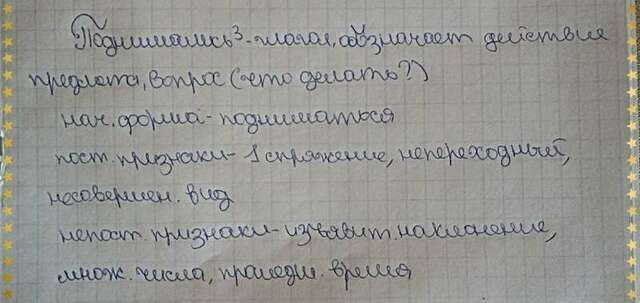 Поднимались³-глагол, обозначает действие
предмета, вопрос (что делать?)
нач. форма- подниматься
пост. признаки- 1 спряжение, непереходный,
несовершен. вид
непост. признаки- изъявит. наклонение,
множ. числа, прошедш. время